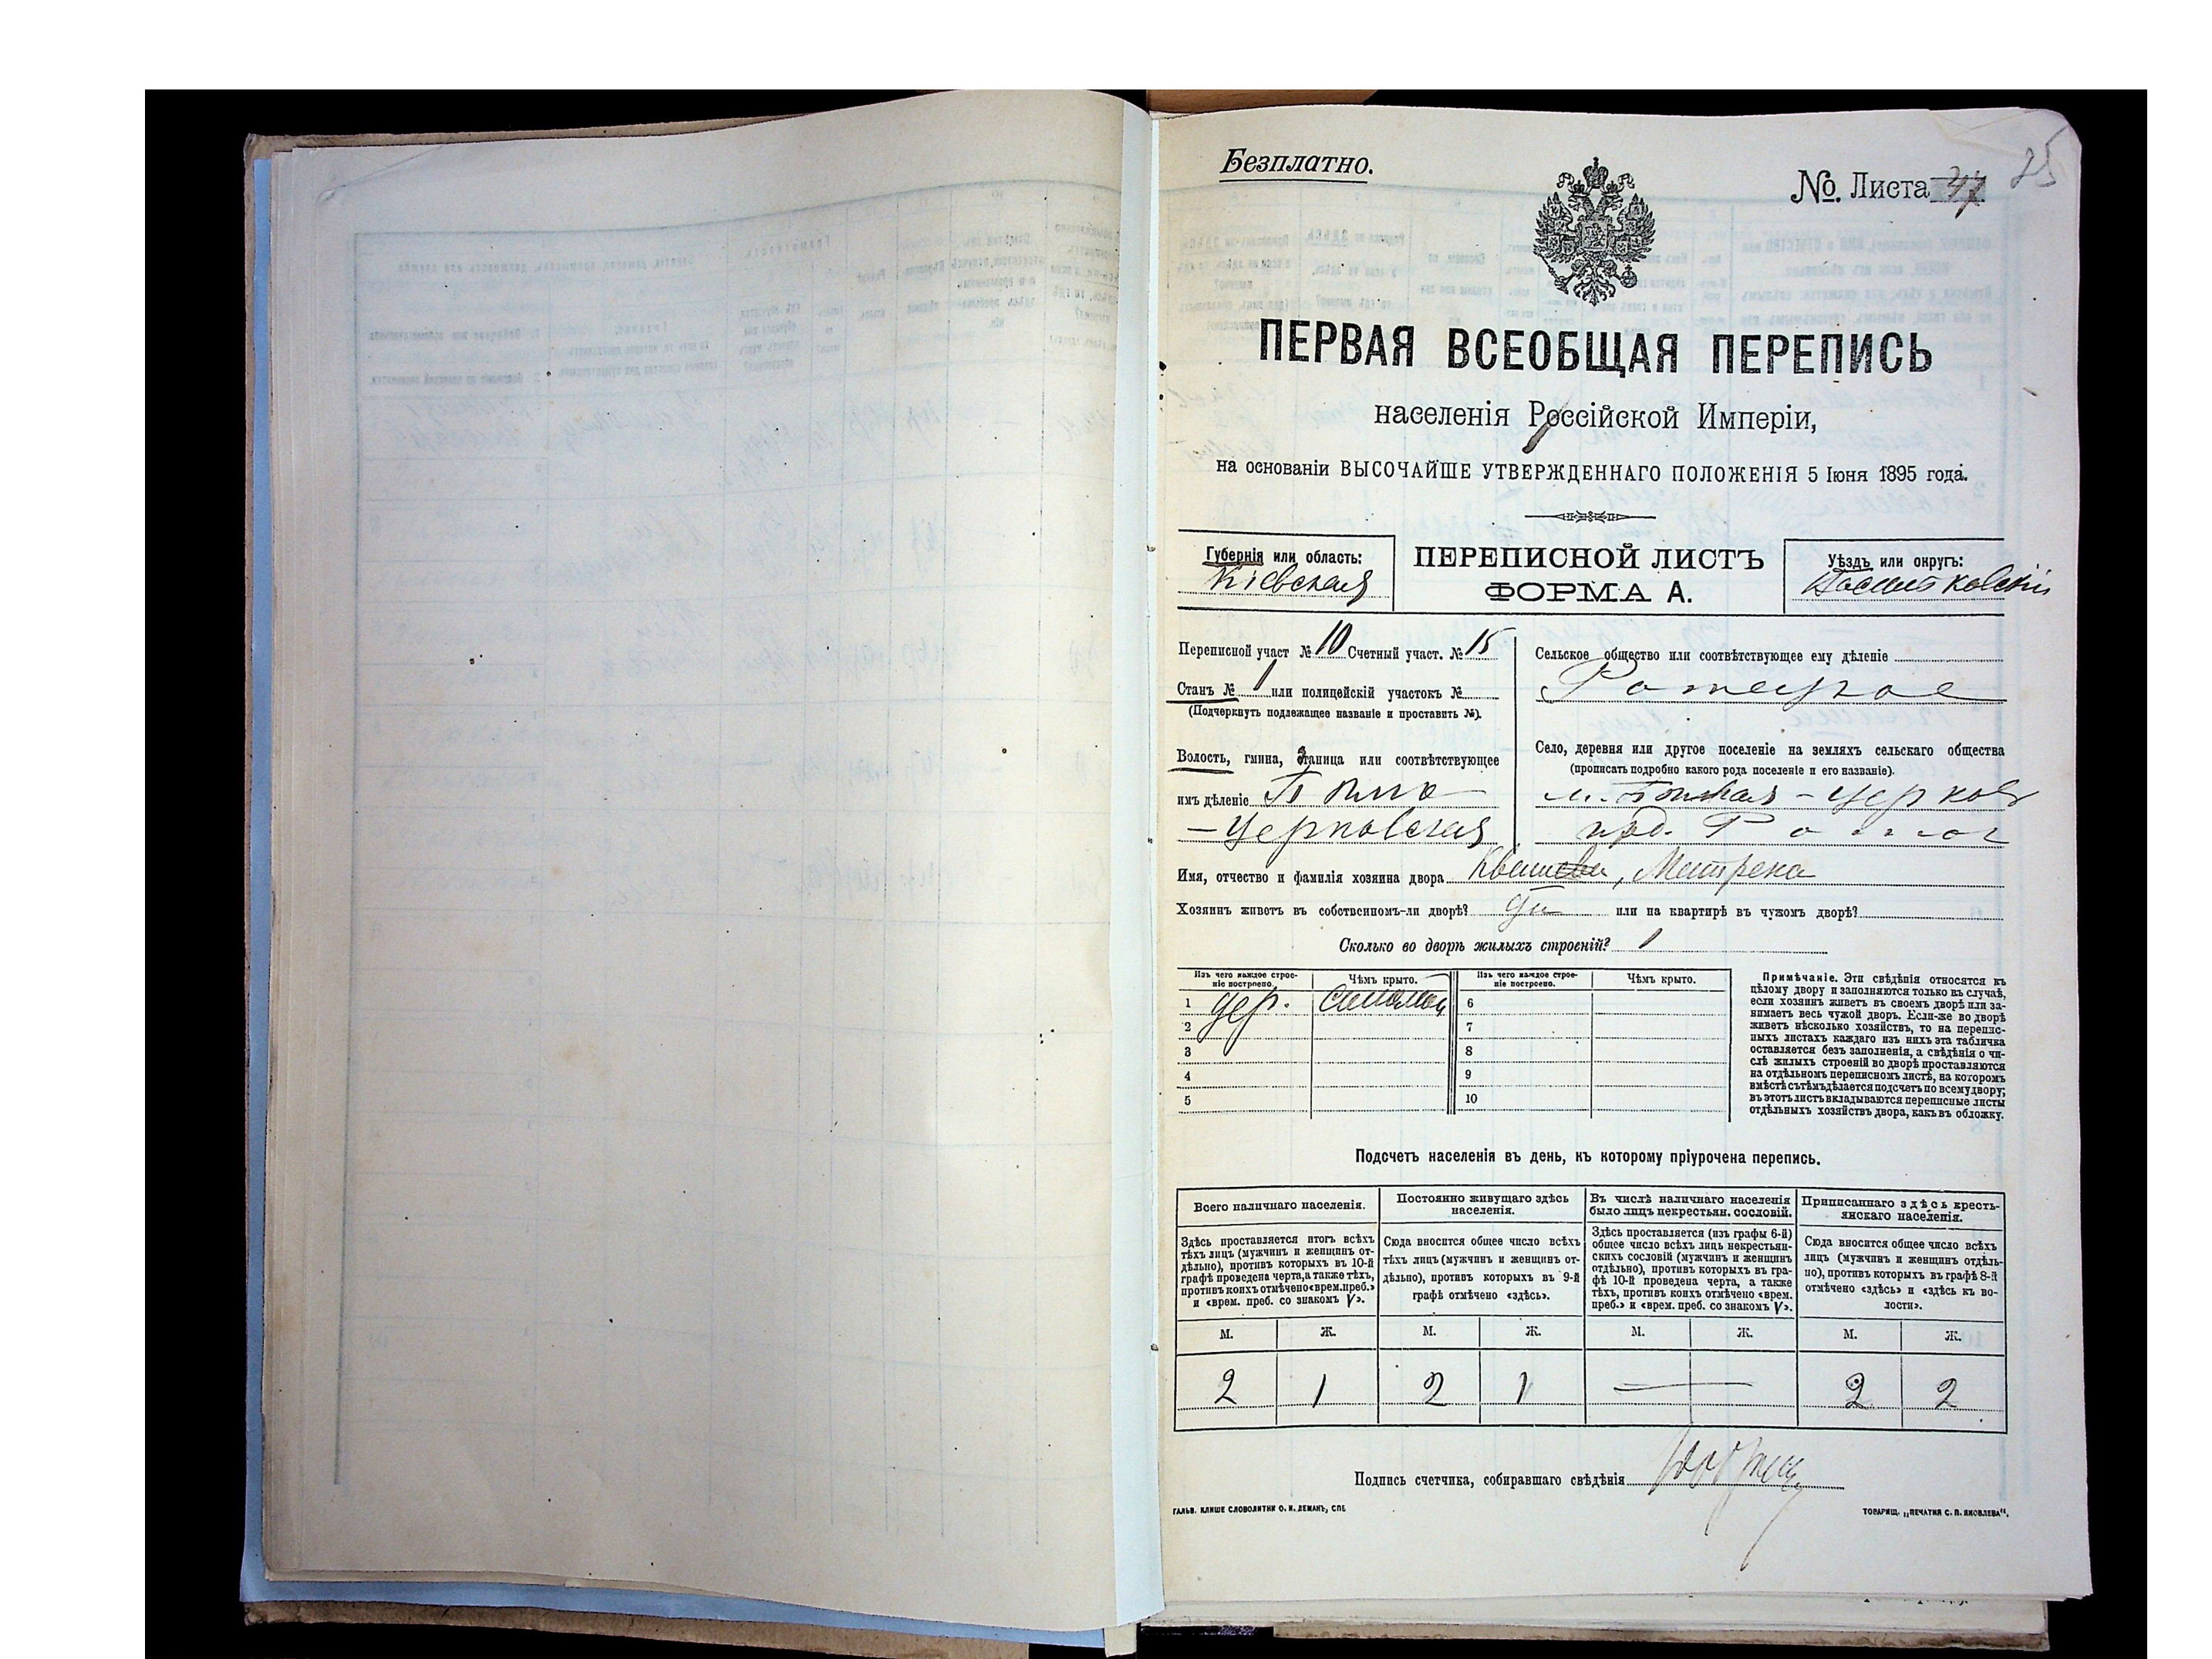 Безплатно.
№ Листа
25
ПЕРВАЯ ВСЕОБЩАЯ ПЕРЕПИСЬ
населенія Россійской Имперіи,
на основаніи ВЫСОЧАЙШЕ УТВЕРЖДЕННАГО ПОЛОЖЕНІЯ 5 Іюня 1895 года.
Губернія или область:
Кіевская
ПЕРЕПИСНОЙ ЛИСТЪ
ФОРМА А.
Уѣздъ или округъ:
Переписной участ № 10 Счетный участ. № 15
Станъ № 1 или полицейскій участокъ №
(Подчеркнуть подлежащее названіе и проставить №).
Волость, гмина, станица или соотвѣтствующее
имъ дѣленіе
-Церковская
Сельское общество или соотвѣтствующее ему дѣленіе
Село, деревня или другое поселеніе на земляхъ сельскаго общества
(прописать подробно какого рода поселеніе и его названіе).
Церковь
Имя, отчество и фамилія хозяина двора Матрена
Хозяинъ живетъ въ собственномъ-ли дворѣ? да или на квартирѣ въ чужомъ дворѣ?
Сколько во дворѣ жилыхъ строеній? 1
Изъ чего каждое строеніе построено.
Чѣмъ крыто.
Изъ чего каждое строеніе построено.
Чѣмъ крыто.
1 дер. соломой 6
2 7
3 8
4 9
5 10
Примѣчаніе. Эти свѣдѣнія относятся къ
цѣлому двору и заполняются только въ случаѣ,
если хозяинъ живетъ въ своемъ дворѣ или за-
нимаетъ весь чужой дворъ. Если-же во дворѣ
живетъ нѣсколько хозяйствъ, то на перепис-
ныхъ листахъ каждаго изъ нихъ эта табличка
оставляется безъ заполненія, а свѣдѣнія о чи-
слѣ жилыхъ строеній во дворѣ проставляются
на отдѣльномъ переписномъ листѣ, на которомъ
вмѣстѣ съ тѣмъ дѣлается подсчетъ по всему двору;
въ этотъ листъ вкладываются переписные листы
отдѣльныхъ хозяйствъ двора, какъ въ обложку.
Подсчетъ населенія въ день, къ которому пріурочена перепись.
Всего наличнаго населенія.
Здѣсь проставляется итогъ всѣхъ
тѣхъ лицъ (мужчинъ и женщинъ от-
дѣльно), противъ которыхъ въ 10-й
графѣ проведена черта, а также тѣхъ,
противъ коихъ отмѣчено «врем. преб.»
и «врем. преб. со знакомъ V».
Постоянно живущаго здѣсь
населенія.
Сюда вносится общее число всѣхъ
тѣхъ лицъ (мужчинъ и женщинъ от-
дѣльно), противъ которыхъ въ 9-й
графѣ отмѣчено «здѣсь».
Въ числѣ наличнаго населенія
было лицъ некрестьян. сословій.
Здѣсь проставляется (изъ графы 6-й)
общее число всѣхъ лицъ некрестьян-
скихъ сословій (мужчинъ и женщинъ
отдѣльно), противъ которыхъ въ гра-
фѣ 10-й проведена черта, а также
тѣхъ, противъ коихъ отмѣчено «врем.
преб.» и «врем. преб. со знакомъ V».
Приписаннаго здѣсь кресть-
янскаго населенія.
Сюда вносится общее число всѣхъ
лицъ (мужчинъ и женщинъ отдѣль-
но), противъ которыхъ въ графѣ 8-й
отмѣчено «здѣсь» и «здѣсь къ во-
лости».
М. Ж. М. Ж. М. Ж. М. Ж.
2 1 2 1 — 2 2
Подпись счетчика, собиравшаго свѣдѣнія
ГАЛЬВ. КЛИШЕ СЛОВОЛИТНИ О. И. ЛЕМАНЪ, СПБ
ТОВАРИЩ. „ПЕЧАТНЯ С. П. ЯКОВЛЕВА“.